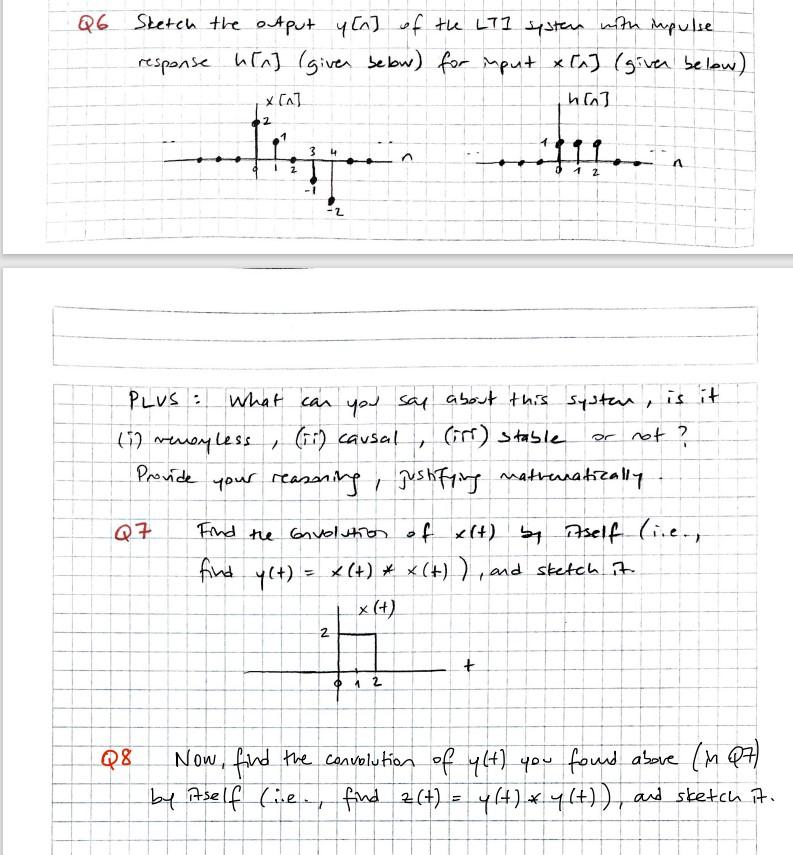 Q6 Sketch the output y[n] of the LTI system with impulse
response h[n] (given below) for input x[n] (given below)
x[n] h[n]
2
1 1
3 4 n n
0 1 2 0 1 2
-1
-2
PLUS : What can you say about this system, is it
(i) memoyless, (ii) causal, (iii) stable or not?
Provide your reasoning, justifying mathematically.
Q7 Find the convolution of x(t) by itself (i.e.,
find y(t) = x(t) * x(t) ), and sketch it.
x(t)
2
t
0 1 2
Q8 Now, find the convolution of y(t) you found above (in Q7)
by itself (i.e., find z(t) = y(t) * y(t)), and sketch it.